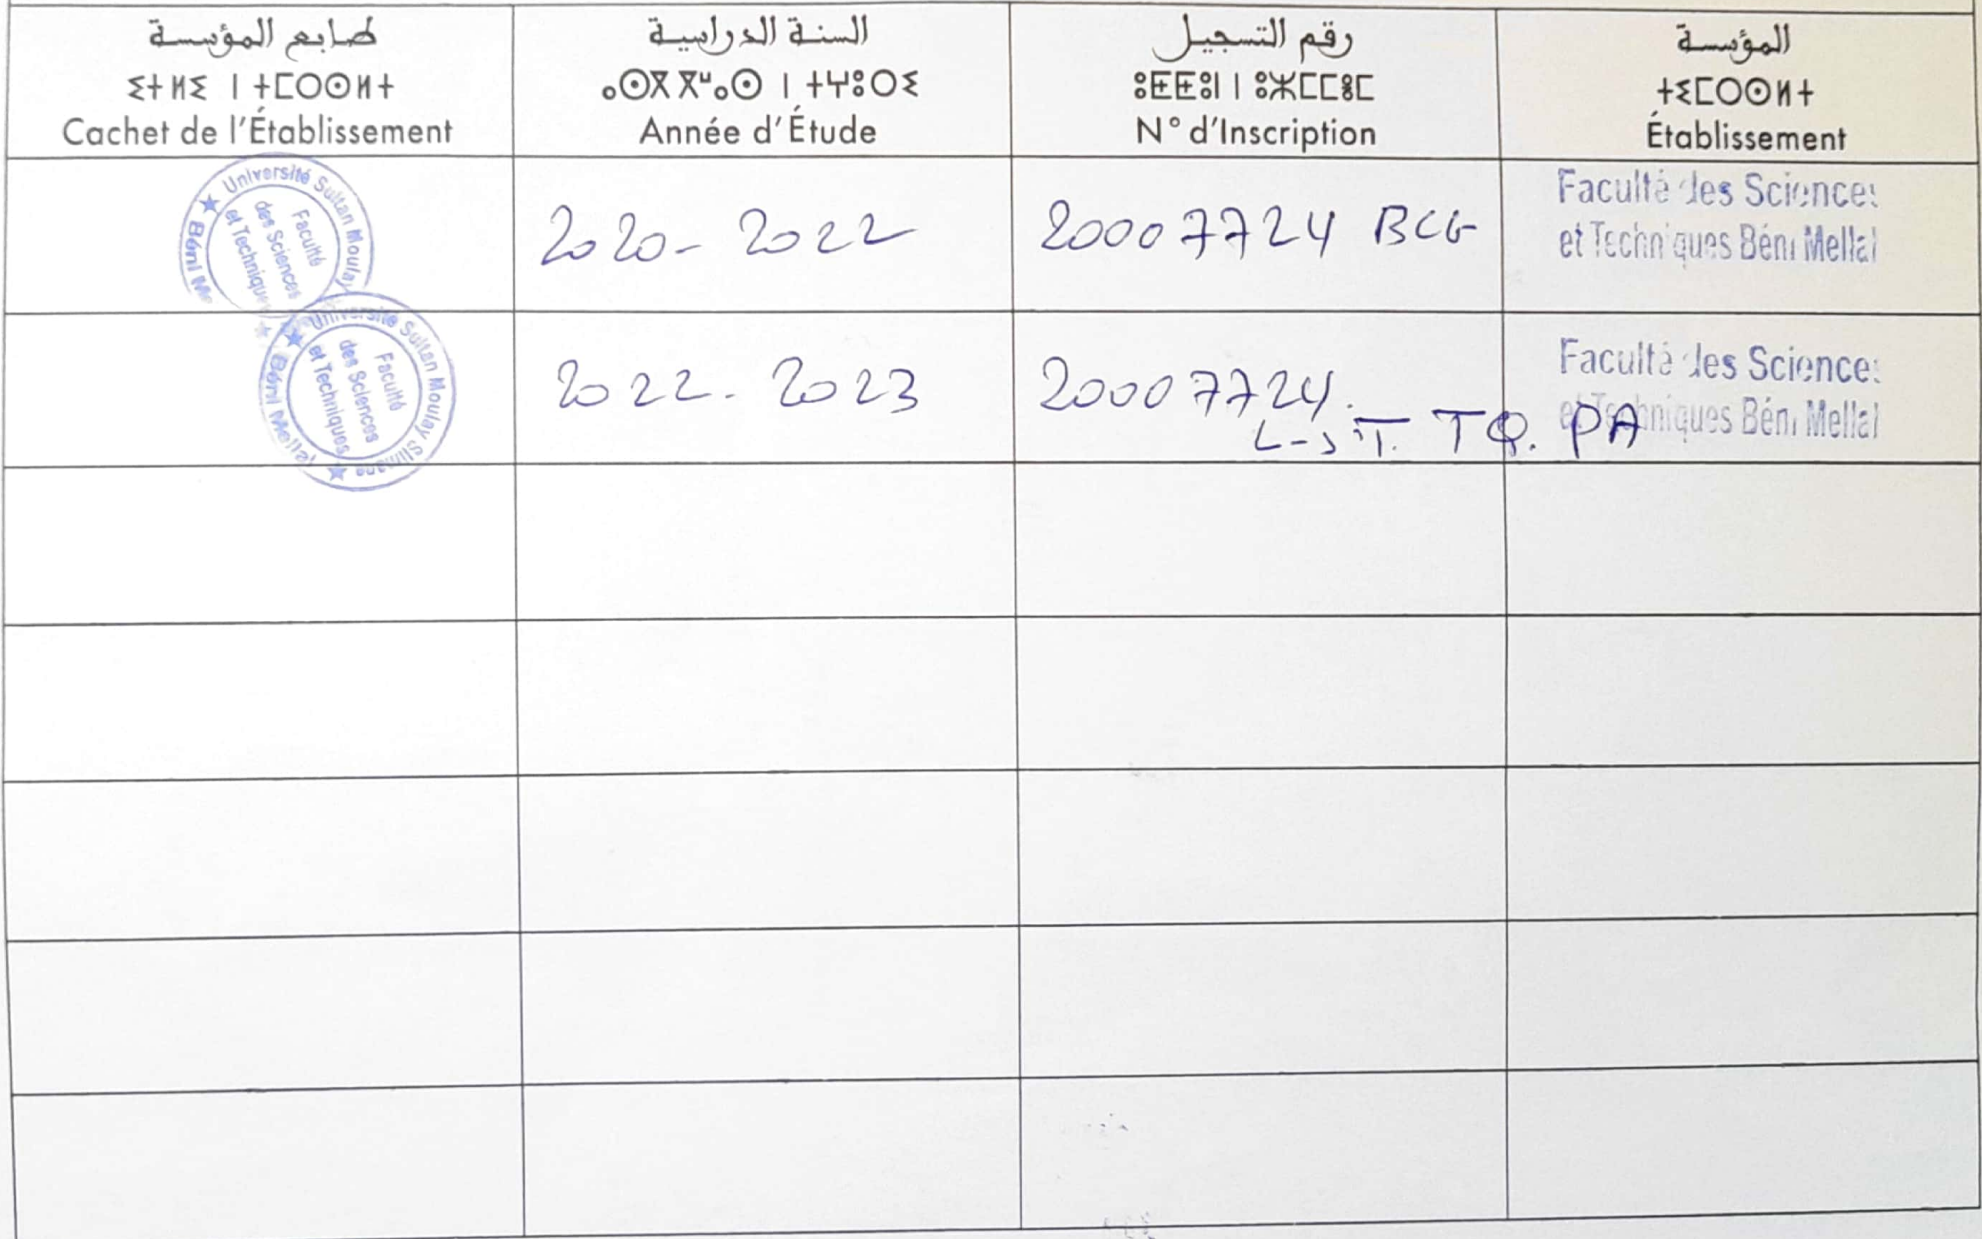 طابع المؤسسة
ⵉⵜⵍⵉ ⵏ ⵜⵎⵔⵙⵍⵜ
Cachet de l'Établissement
السنة الدراسية
ⴰⵙⴳⴳⵯⴰⵙ ⵏ ⵜⵖⵓⵔⵉ
Année d'Étude
رقم التسجيل
ⵓⵟⵟⵓⵏ ⵏ ⵓⵣⵎⵎⵓⵎ
N° d'Inscription
المؤسسة
ⵜⵉⵎⵔⵙⵍⵜ
Établissement
Université Sultan Moulay
Faculté
des Sciences
et Techniques
Béni Me
2020-2022
20007724 BCG
Faculté des Sciences
et Techniques Béni Mellal
Université Sultan Moulay Slimane
Faculté
des Sciences
et Techniques
Béni Mellal
2022-2023
20007724.
L-S.T. TQ. PA
Faculté des Sciences
et Techniques Béni Mellal